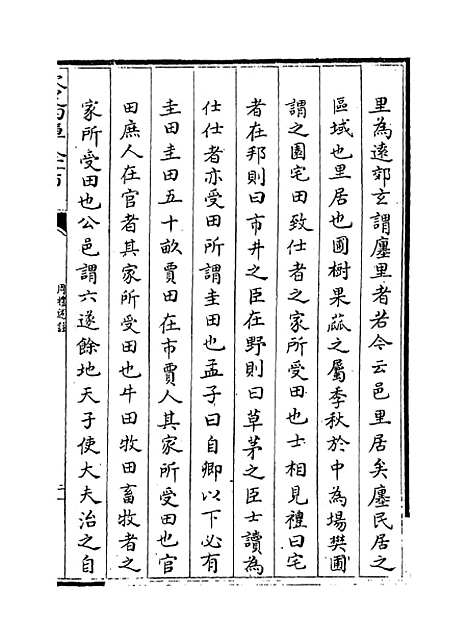 里為遠郊玄謂廛里者若今云邑里居矣廛民居之
區域也里居也圃樹果蓏之屬季秋於中為場樊圃
謂之園宅田致仕者之家所受田也士相見禮曰宅
者在邦則曰市井之臣在野則曰草茅之臣士讀為
仕仕者亦受田所謂圭田也孟子曰自卿以下必有
圭田圭田五十畝賈田在市賈人其家所受田也官
田庶人在官者其家所受田也牛田牧田畜牧者之
家所受田也公邑謂六遂餘地天子使大夫治之自
周禮述註